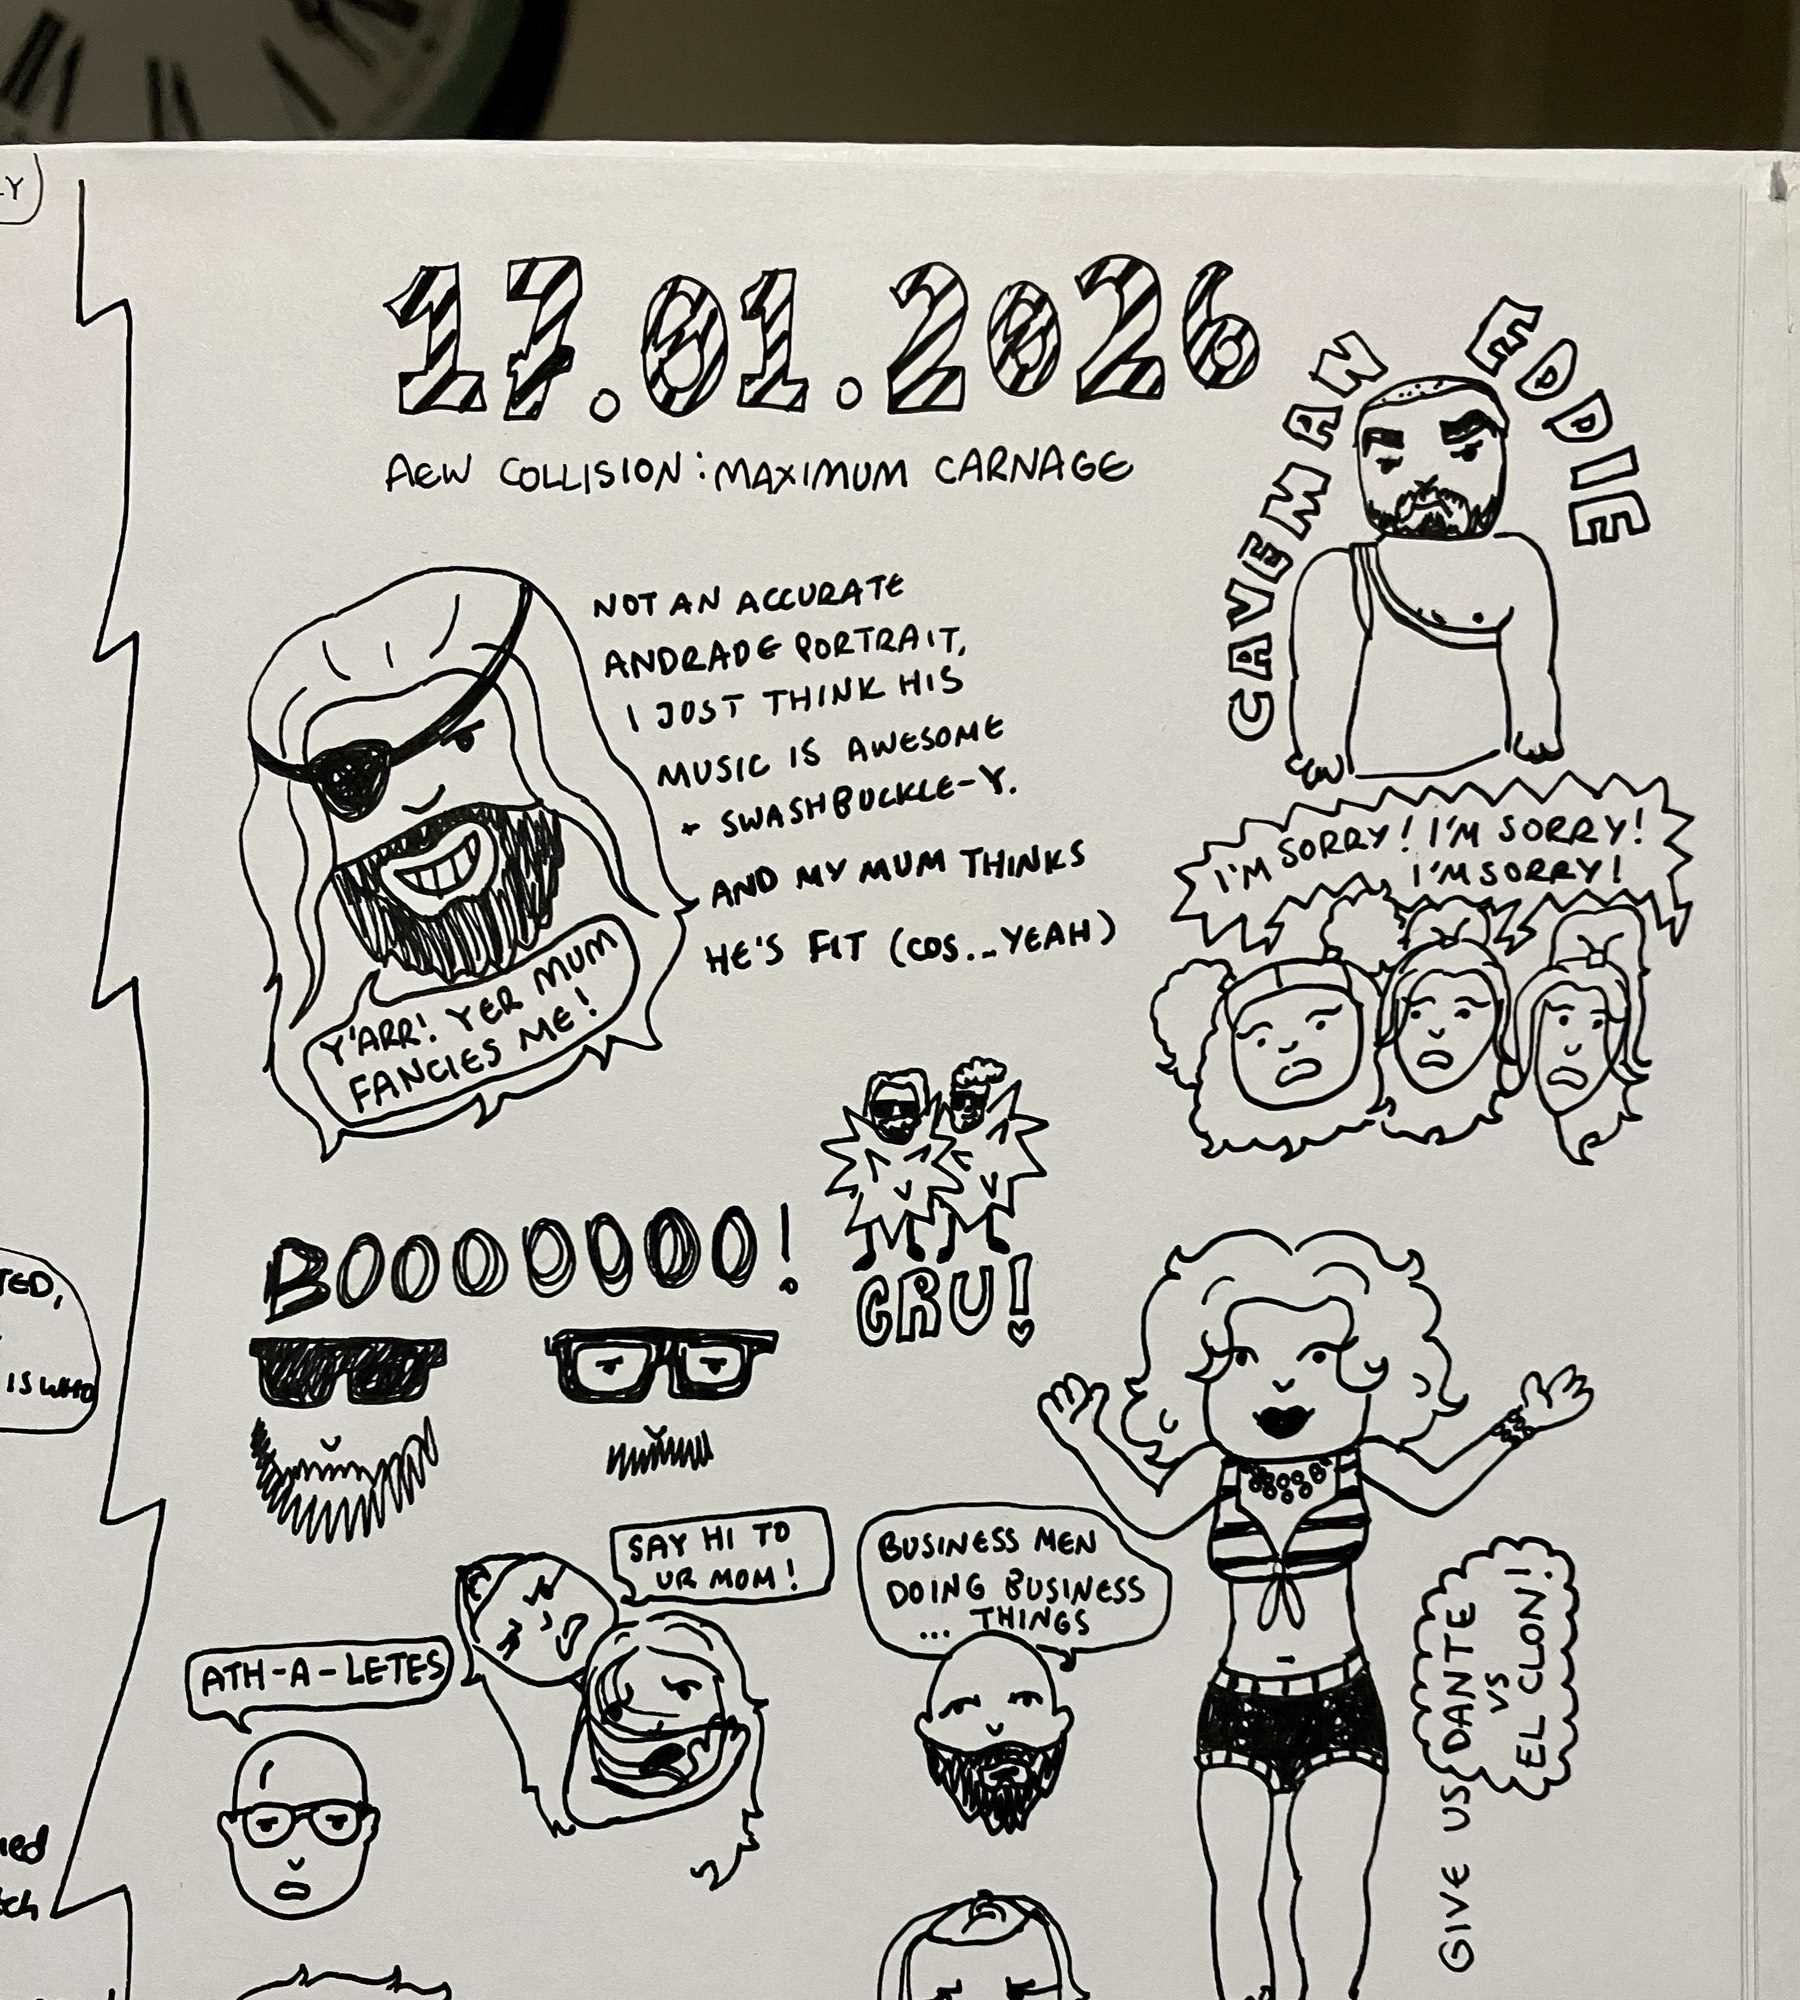 LY
17.01.2026
AEW COLLISION: MAXIMUM CARNAGE
CAVEMAN EDDIE
NOT AN ACCURATE
ANDRADE PORTRAIT,
I JUST THINK HIS
MUSIC IS AWESOME
+ SWASHBUCKLE-Y.
AND MY MUM THINKS
HE'S FIT (COS...YEAH)
Y'ARR! YER MUM
FANCIES ME!
I'M SORRY! I'M SORRY!
I'M SORRY!
BOOOOOOO!
CRU!
TED,
IS WHO
SAY HI TO
UR MOM!
BUSINESS MEN
DOING BUSINESS
... THINGS
ATH-A-LETES
GIVE US DANTE
VS
EL CLON!